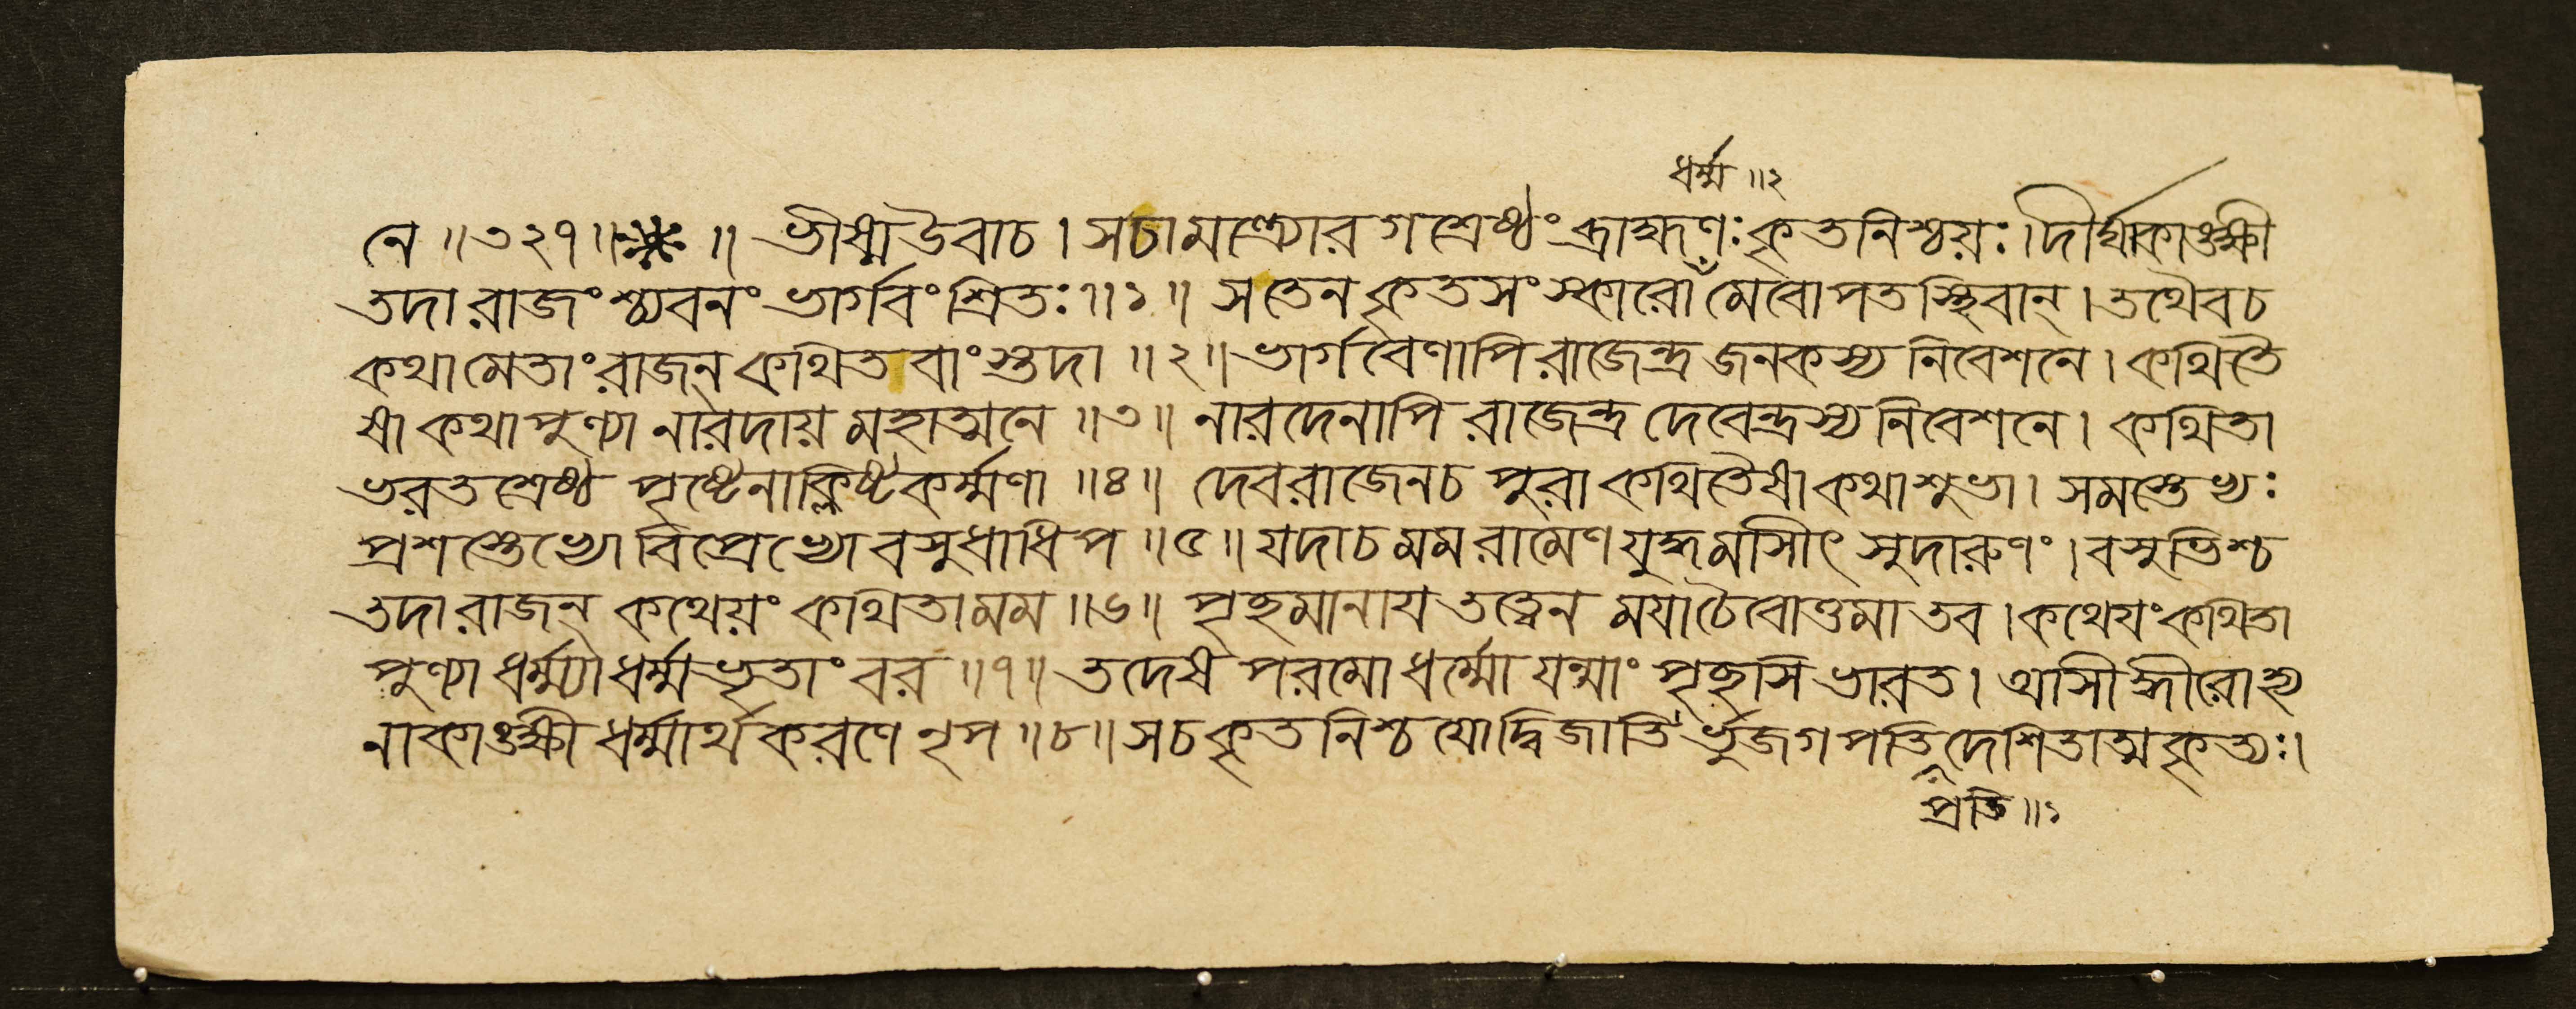 ধর্ম্ম ॥২
নে ॥৩২৭॥ ॥ ভীষ্ম উবাচ । স চামন্ত্র্যোরগশ্রেষ্ঠং ব্রাহ্মণঃ কৃতনিশ্চয়ঃ । দীক্ষাকাঙ্ক্ষী
তদা রাজংশ্চ্যবনং ভার্গবং শ্রিতঃ ॥১॥ স তেন কৃতসংস্কারো মেবোপতস্থিবান্ । তথৈব চ
কথামেতাং রাজন্ কথিতবাংস্তদা ॥২॥ ভার্গবেণাপি রাজেন্দ্র জনকস্য নিবেশনে । কথিতৈ
ষা কথা পুণ্যা নারদায় মহাত্মনে ॥৩॥ নারদেনাপি রাজেন্দ্র দেবেন্দ্রস্য নিবেশনে । কথিতা
ভরতশ্রেষ্ঠ পৃষ্টেনাক্লিষ্টকর্ম্মণা ॥৪॥ দেবরাজেন চ পুরা কথিতৈষা কথা শুভা । সমস্তেভ্যঃ
প্রশস্তেভ্যো বিপ্রেভ্যো বসুধাধিপ ॥৫॥ যদা চ মম রামেণ যুদ্ধমাসীৎ সুদারুণং । বসুভিশ্চ
তদা রাজন্ কথেয়ং কথিতা মম ॥৬॥ পৃচ্ছমানায তত্ত্বেন মযা চৈবোত্তমা তব । কথেযং কথিতা
পুণ্যা ধর্ম্ম্যা ধর্ম্মভৃতাং বর ॥৭॥ তদেষ পরমো ধর্ম্মো যন্মাং পৃচ্ছসি ভারত । আসীদ্ধীরো হ্য
নাকাঙ্ক্ষী ধর্ম্মার্থকরণে নৃপ ॥৮॥ স চ কৃতনিশ্চযো দ্বিজাতির্ভুজগপতিদেশিতাত্মকৃত্যঃ ।
প্রতি ॥১